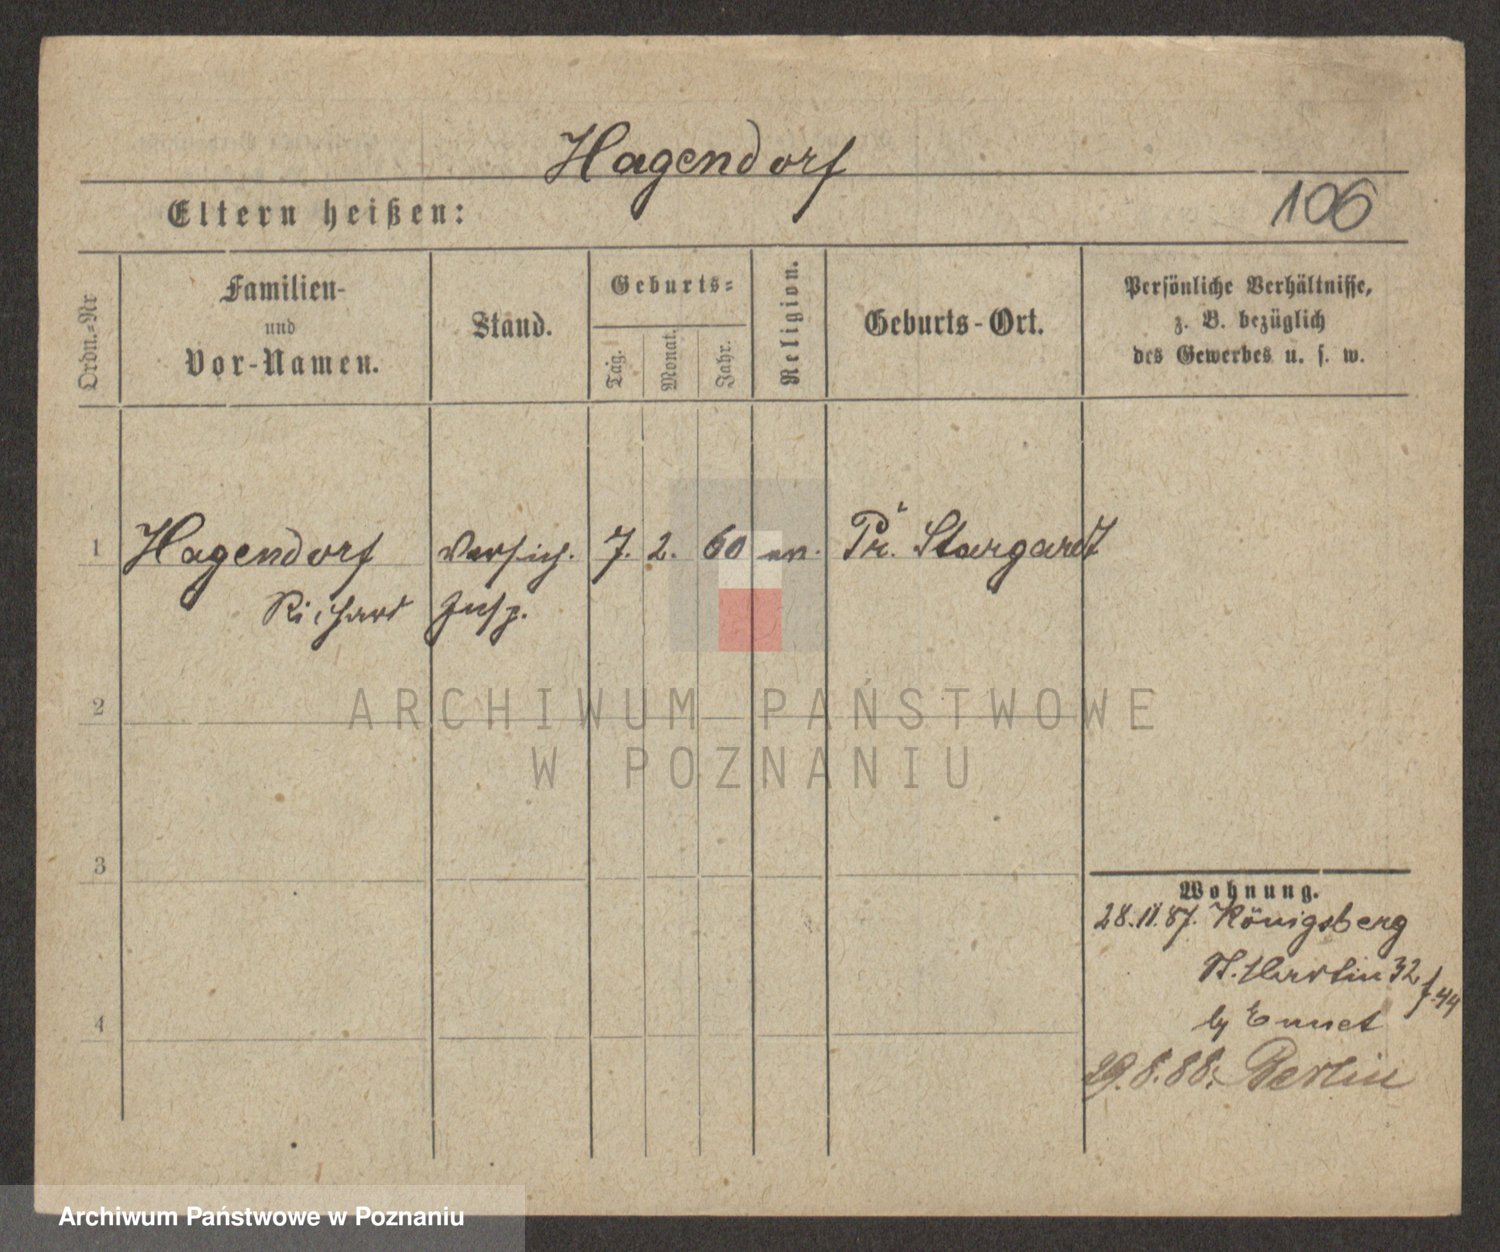 Hagendorf
Eltern heißen:
106
Ordn.-Nr
Familien-
und
Vor-Namen.
Stand.
Geburts-
Tag.
Monat.
Jahr.
Religion.
Geburts-Ort.
Persönliche Verhältnisse,
z. B. bezüglich
des Gewerbes u. s. w.
1 Hagendorf Versich. 7. 2. 60 ev. Pr. Stargardt
Richard Insp.
2
ARCHIWUM PAŃSTWOWE
W POZNANIU
3
Wohnung.
28.11.87. Königsberg
St. Martin 32
4
29.8.88. Berlin
Archiwum Państwowe w Poznaniu